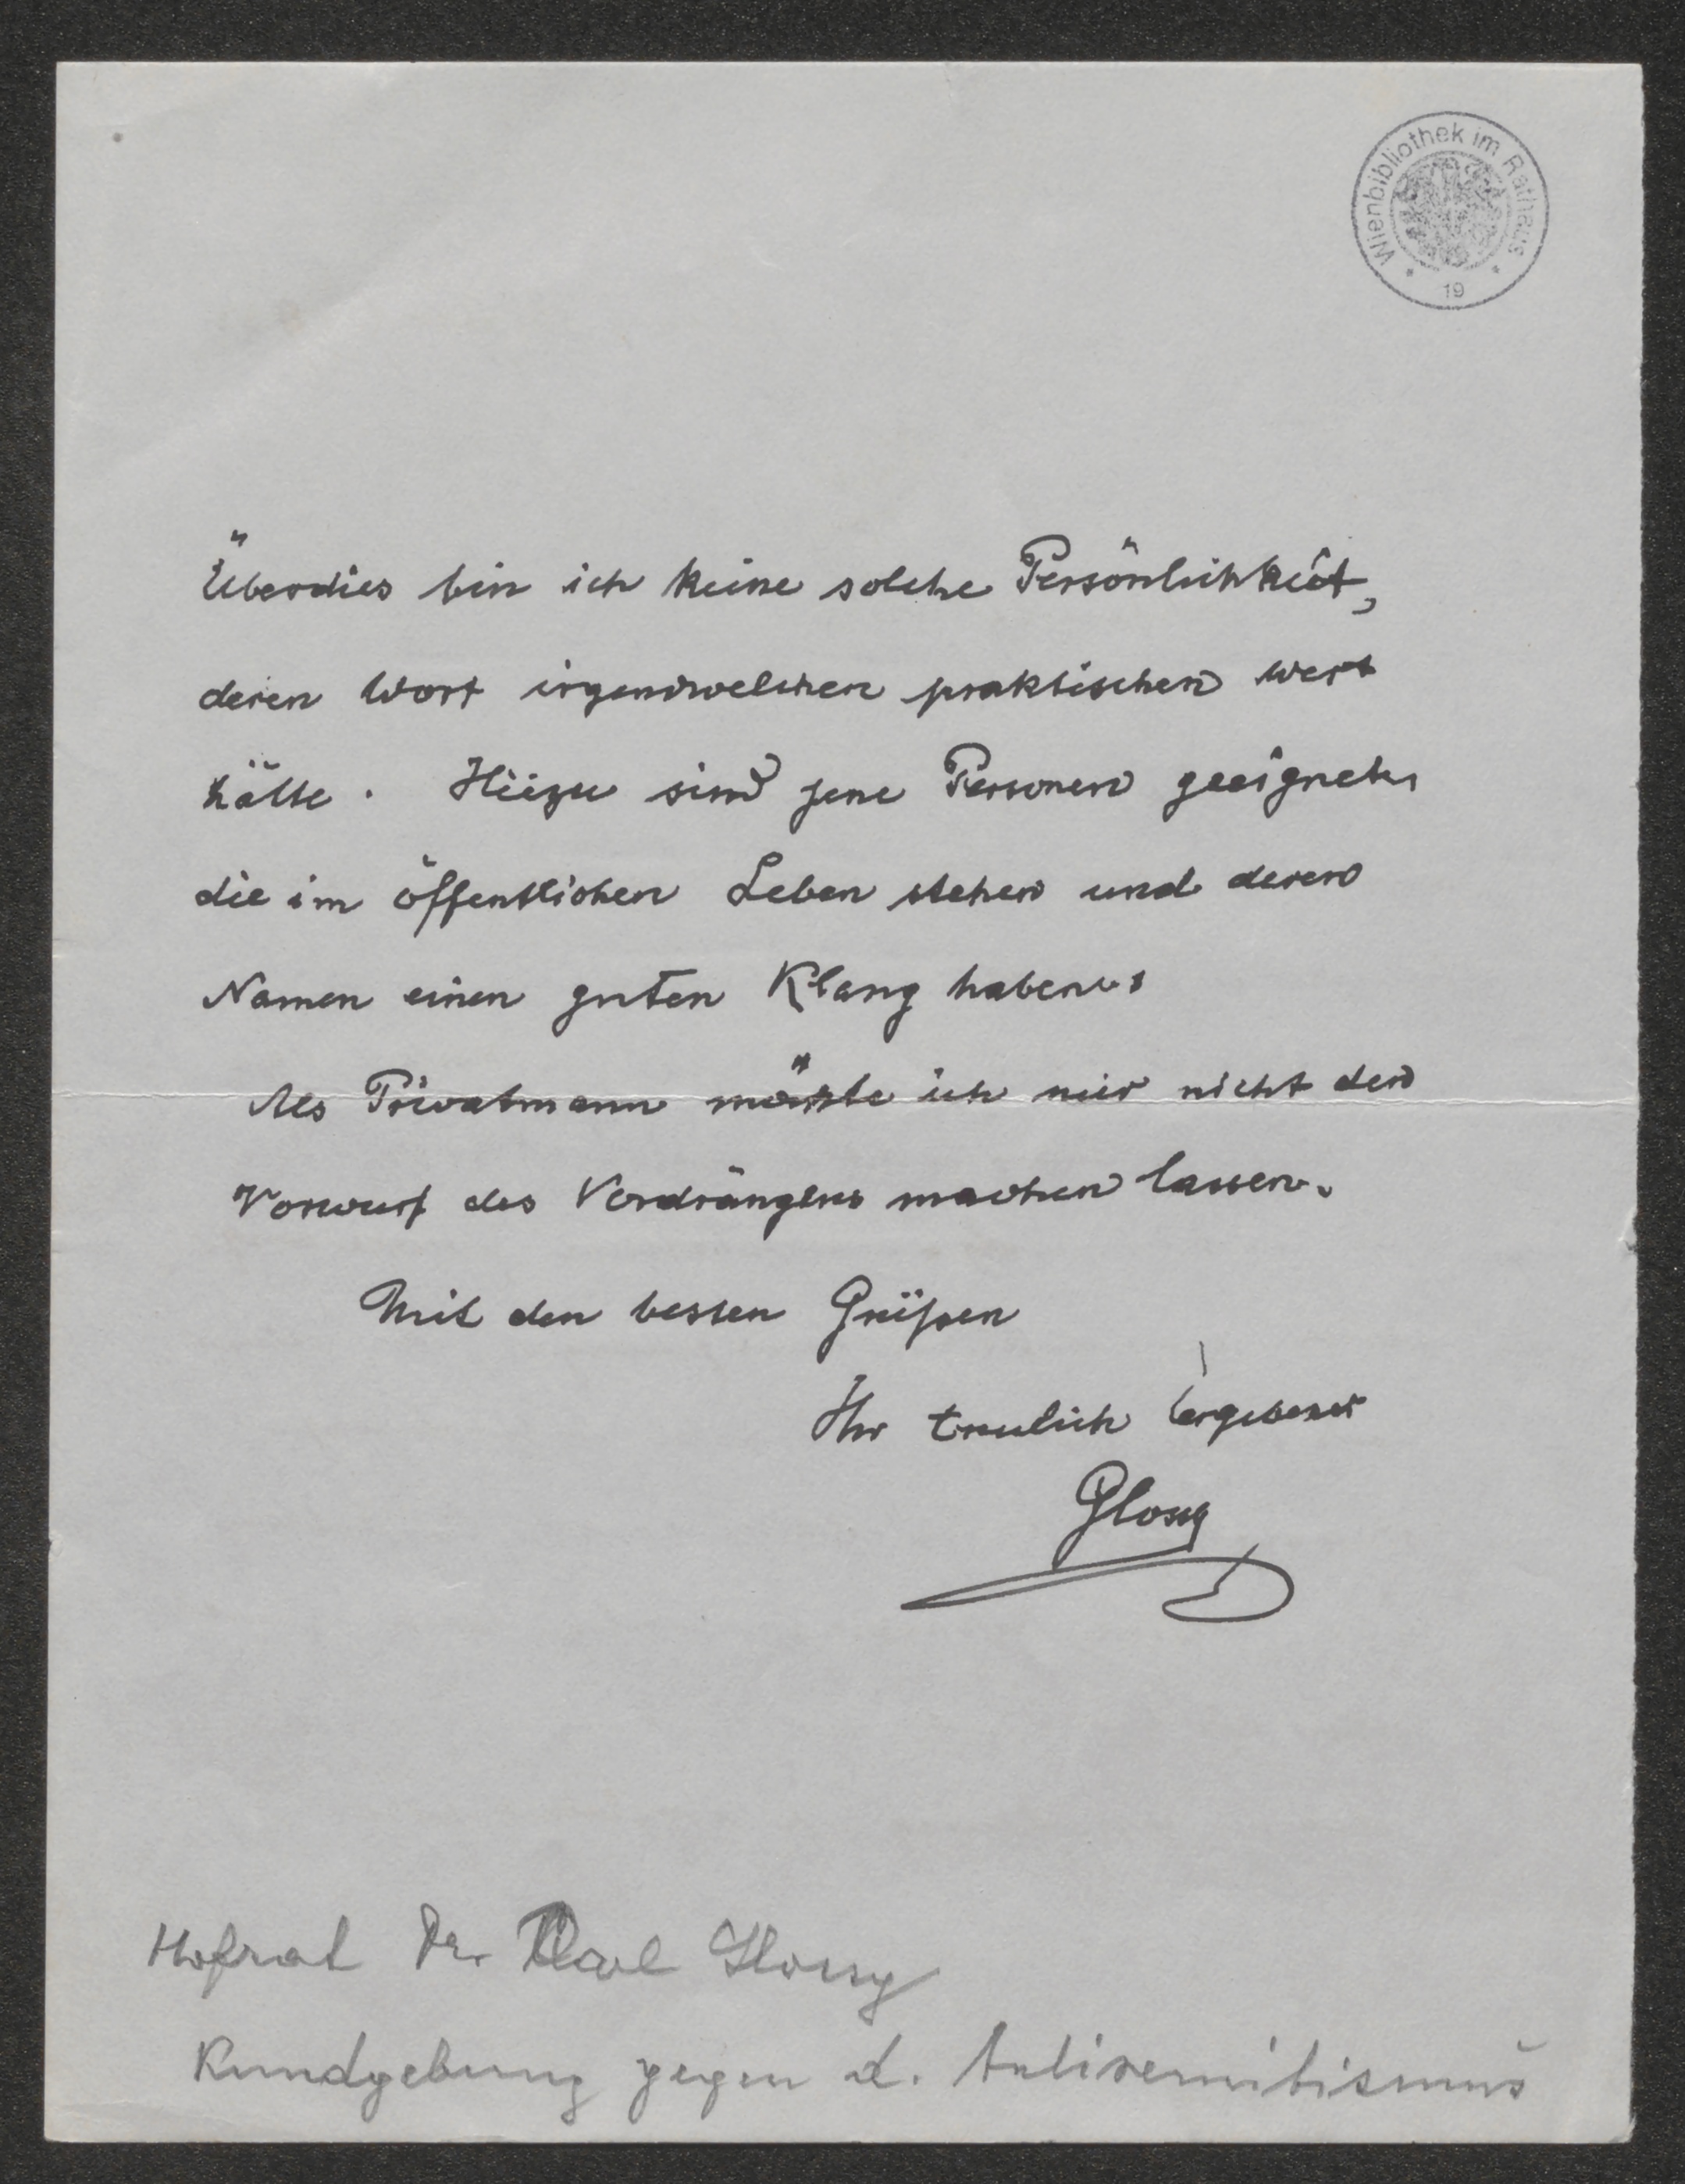 Wienbibliothek im Rathaus
19
Überdies bin ich keine solche Persönlichkeit,
deren Wort irgendwelchen praktischen Wert
hätte. Hiezu sind jene Personen geeignet,
die im öffentlichen Leben stehen und deren
Namen einen guten Klang haben.
Als Privatmann möchte ich mir nicht den
Vorwurf des Vordrängens machen lassen.
Mit den besten Grüßen
Ihr treulich ergebener
Glossy
Hofrat Dr. Karl Glossy
Kundgebung gegen d. Antisemitismus